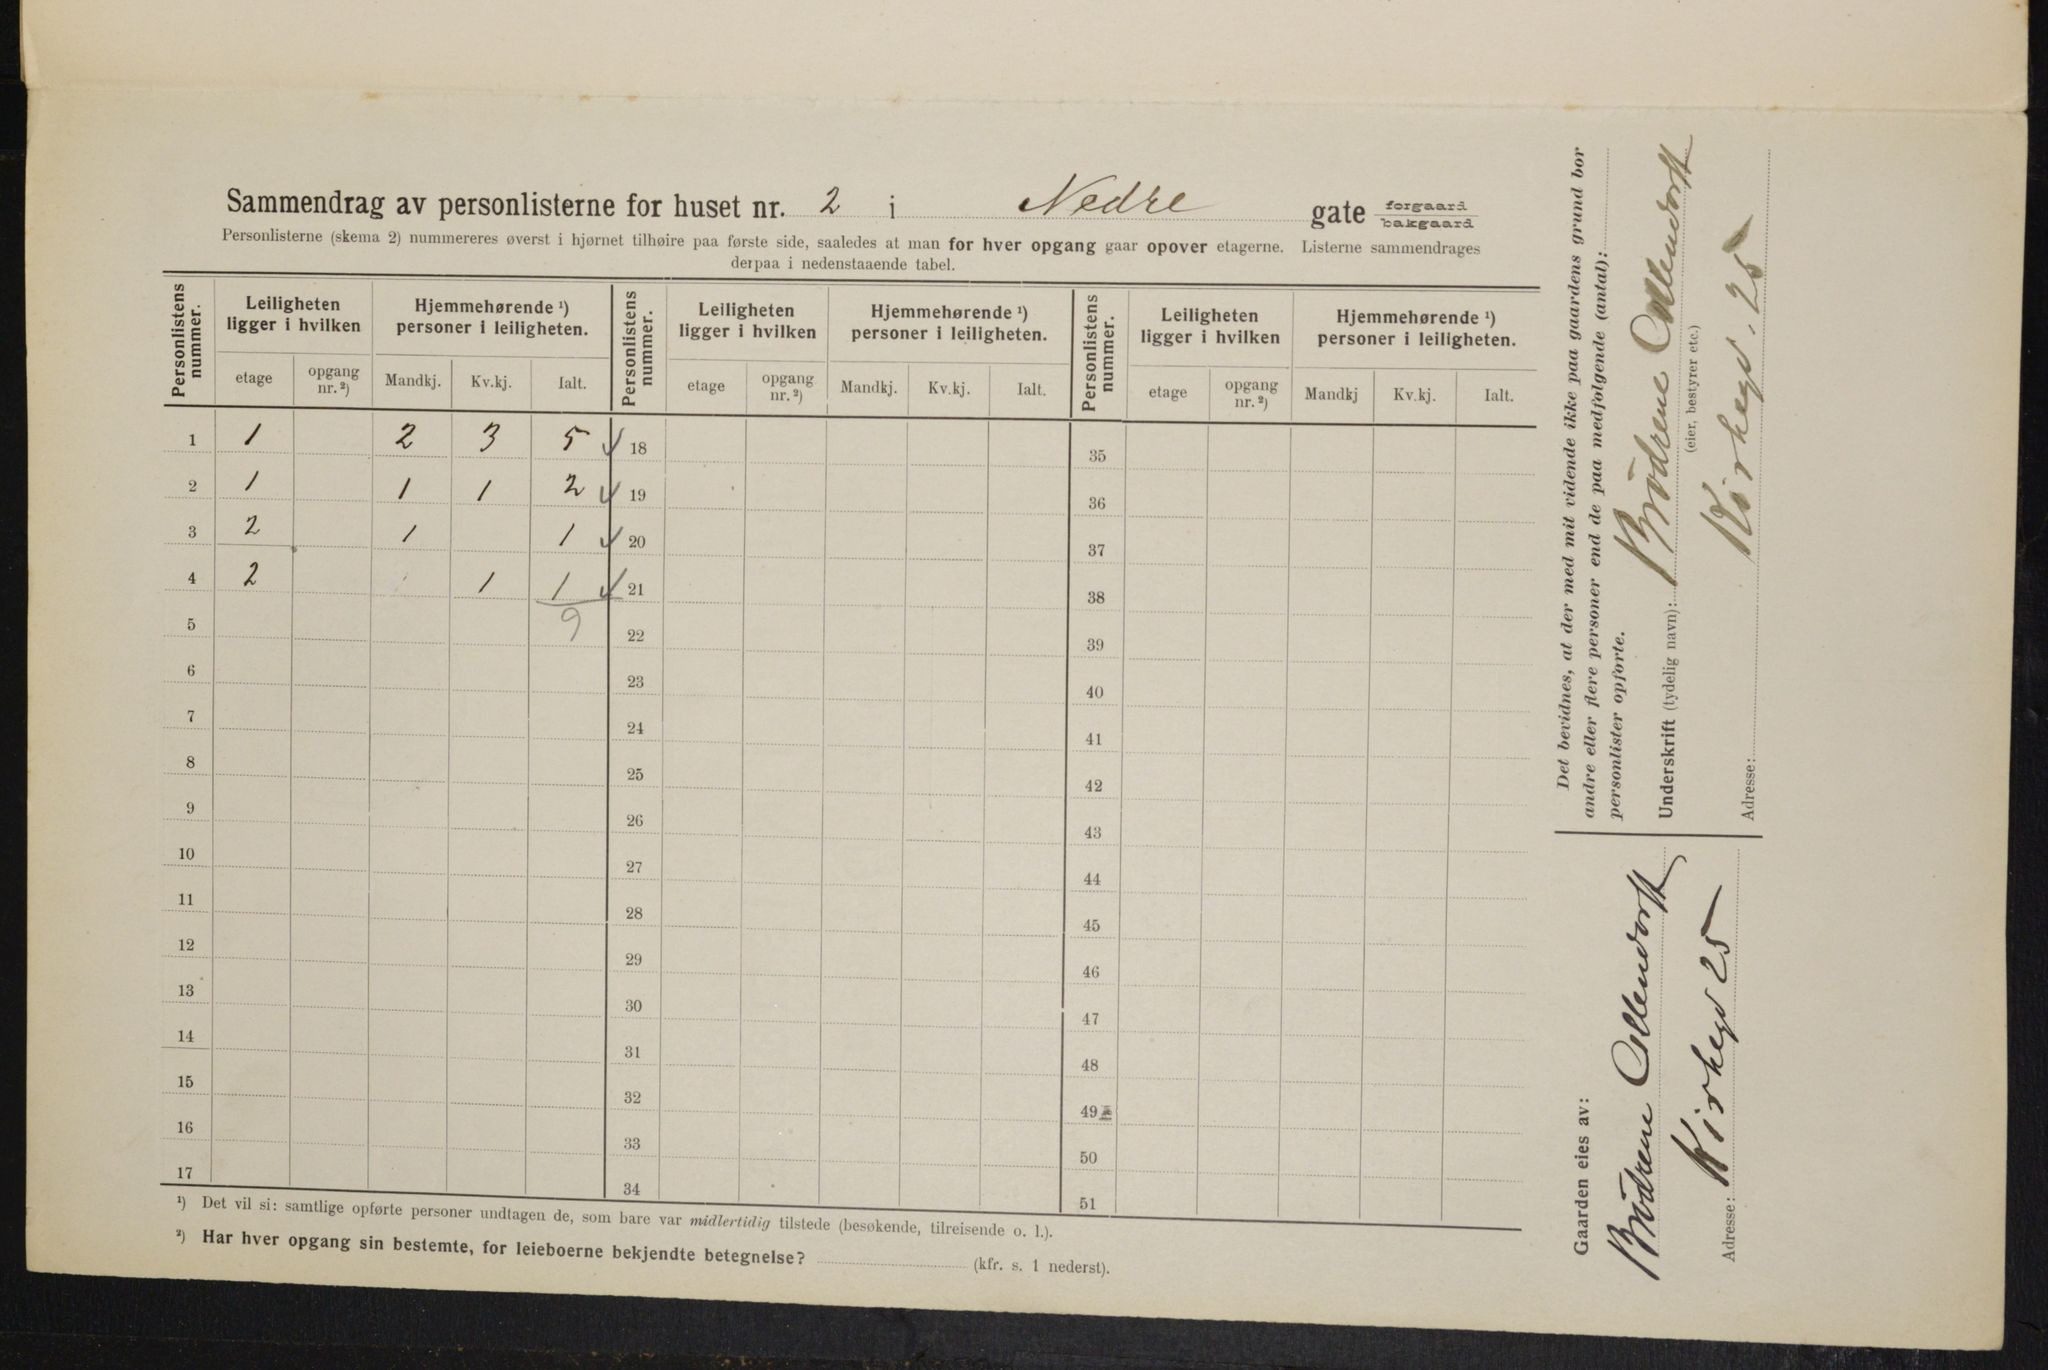 Sammendrag av personlisterne for huset nr. 2 i Nedre gate forgaard bakgaard
Personlisterne (skema 2) nummereres øverst i hjørnet tilhøire paa første side, saaledes at man for hver opgang gaar opover etagerne. Listerne sammendrages
derpaa i nedenstaaende tabel.
Personlistens nummer. Leiligheten ligger i hvilken Hjemmehørende ¹) personer i leiligheten. Personlistens nummer. Leiligheten ligger i hvilken Hjemmehørende ¹) personer i leiligheten. Personlistens nummer. Leiligheten ligger i hvilken Hjemmehørende ¹) personer i leiligheten.
etage opgang nr. ²) Mandkj. Kv.kj. Ialt. etage opgang nr. ²) Mandkj. Kv.kj. Ialt. etage opgang nr. ²) Mandkj Kv.kj. Ialt.
1 1 2 3 5 18 35
2 1 1 1 2 19 36
3 2 1 1 20 37
4 2 1 1 21 38
5 9 22 39
6 23 40
7 24 41
8 25 42
9 26 43
10 27 44
11 28 45
12 29 46
13 30 47
14 31 48
15 32 49
16 33 50
17 34 51
¹) Det vil si: samtlige opførte personer undtagen de, som bare var midlertidig tilstede (besøkende, tilreisende o. l.).
²) Har hver opgang sin bestemte, for leieboerne bekjendte betegnelse? (kfr. s. 1 nederst).
Det bevidnes, at der med mit vidende ikke paa gaardens grund bor
andre eller flere personer end de paa medfolgende (antal):
personlister opforte.
Underskrift (tydelig navn): Brödrene Ollendorff
(eier, bestyrer etc.)
Adresse: Kirkegd. 25
Gaarden eies av:
Brödrene Ollendorff
Adresse: Kirkegd 25